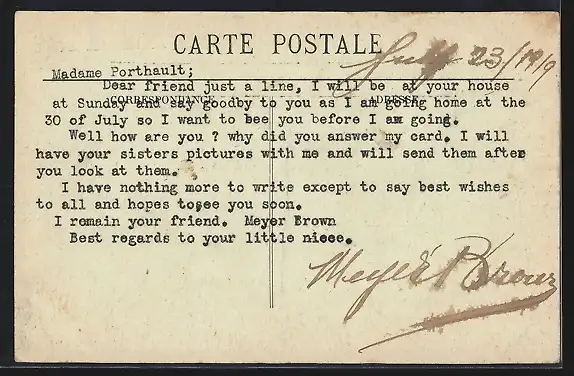 CARTE POSTALE
July 23/1919
Madame Porthault;
Dear friend just a line, I will be at your house
CORRESPONDANCE
ADRESSE
at Sunday and say goodby to you as I am going home at the
30 of July so I want to bee you before I am going.
Well how are you ? why did you answer my card. I will
have your sisters pictures with me and will send them after
you look at them.
I have nothing more to write except to say best wishes
to all and hopes tosee you soon.
I remain your friend. Meyer Brown
Best regards to your little niece.
Meyer Brown